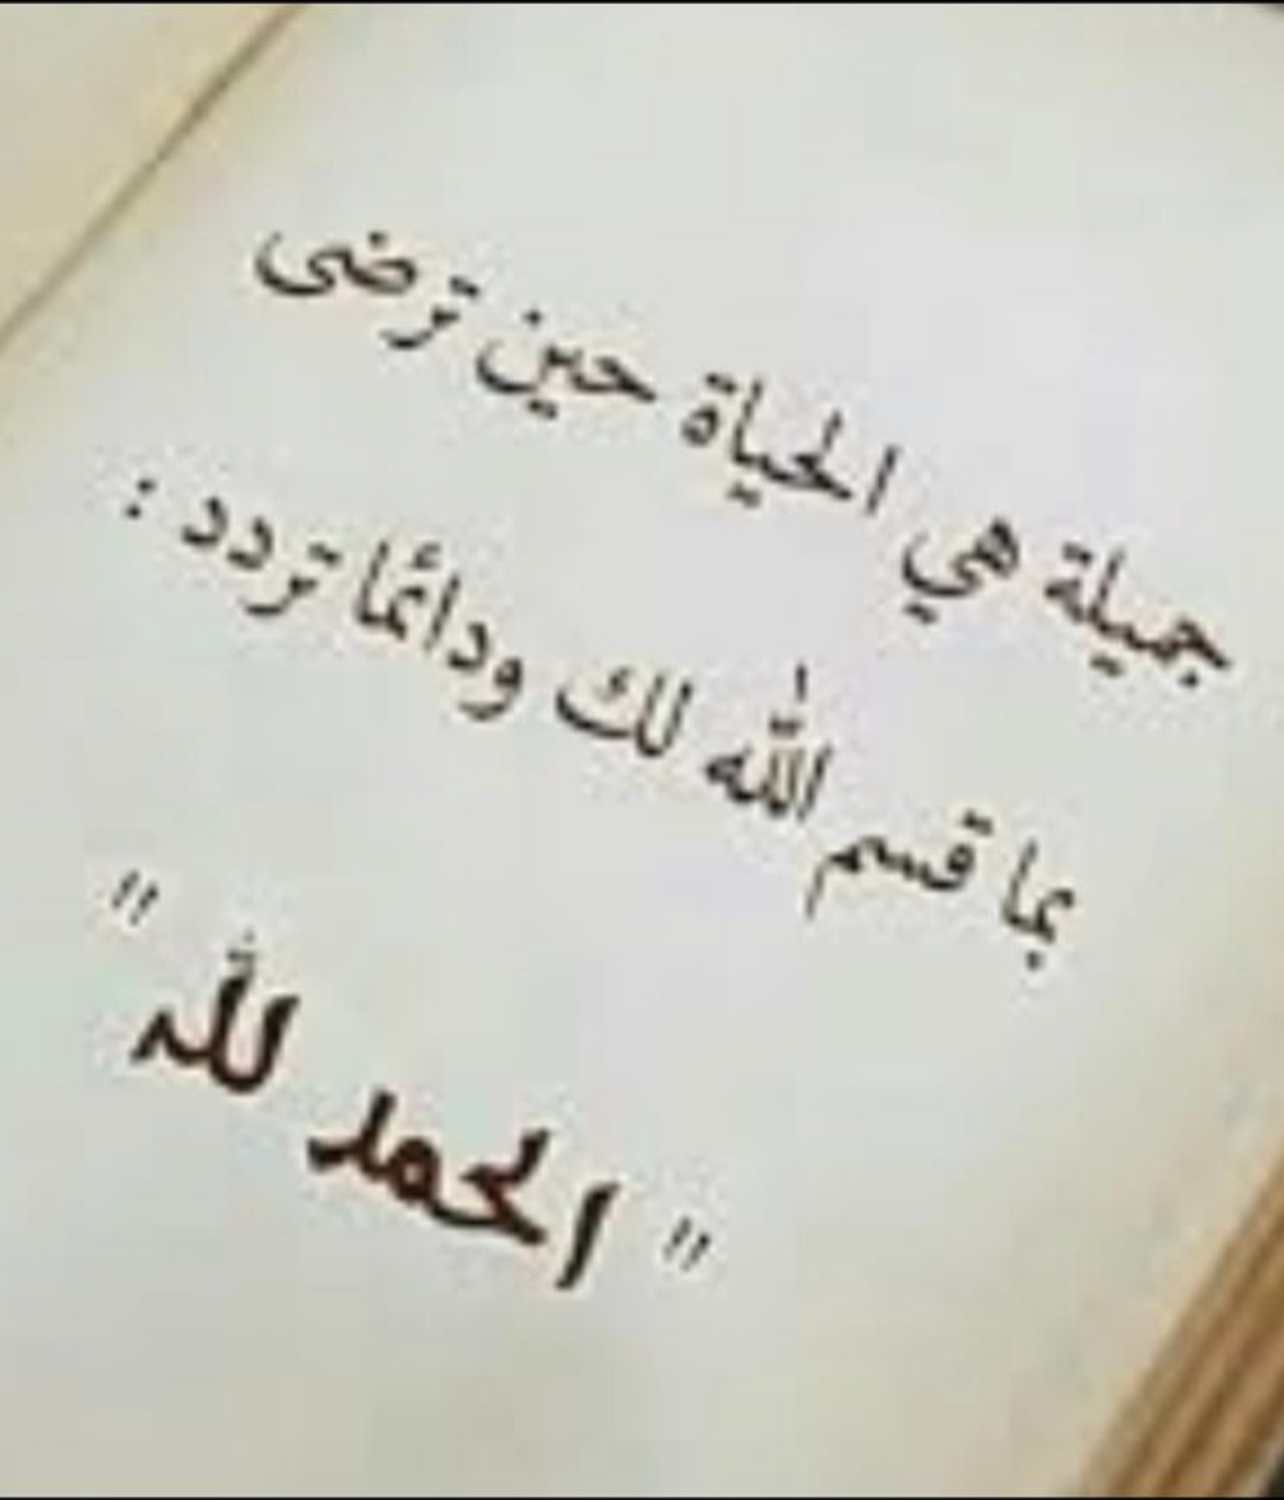 جميلة هي الحياة حين ترضى
بما قسم الله لك ودائما تردد :
" الحمد لله "